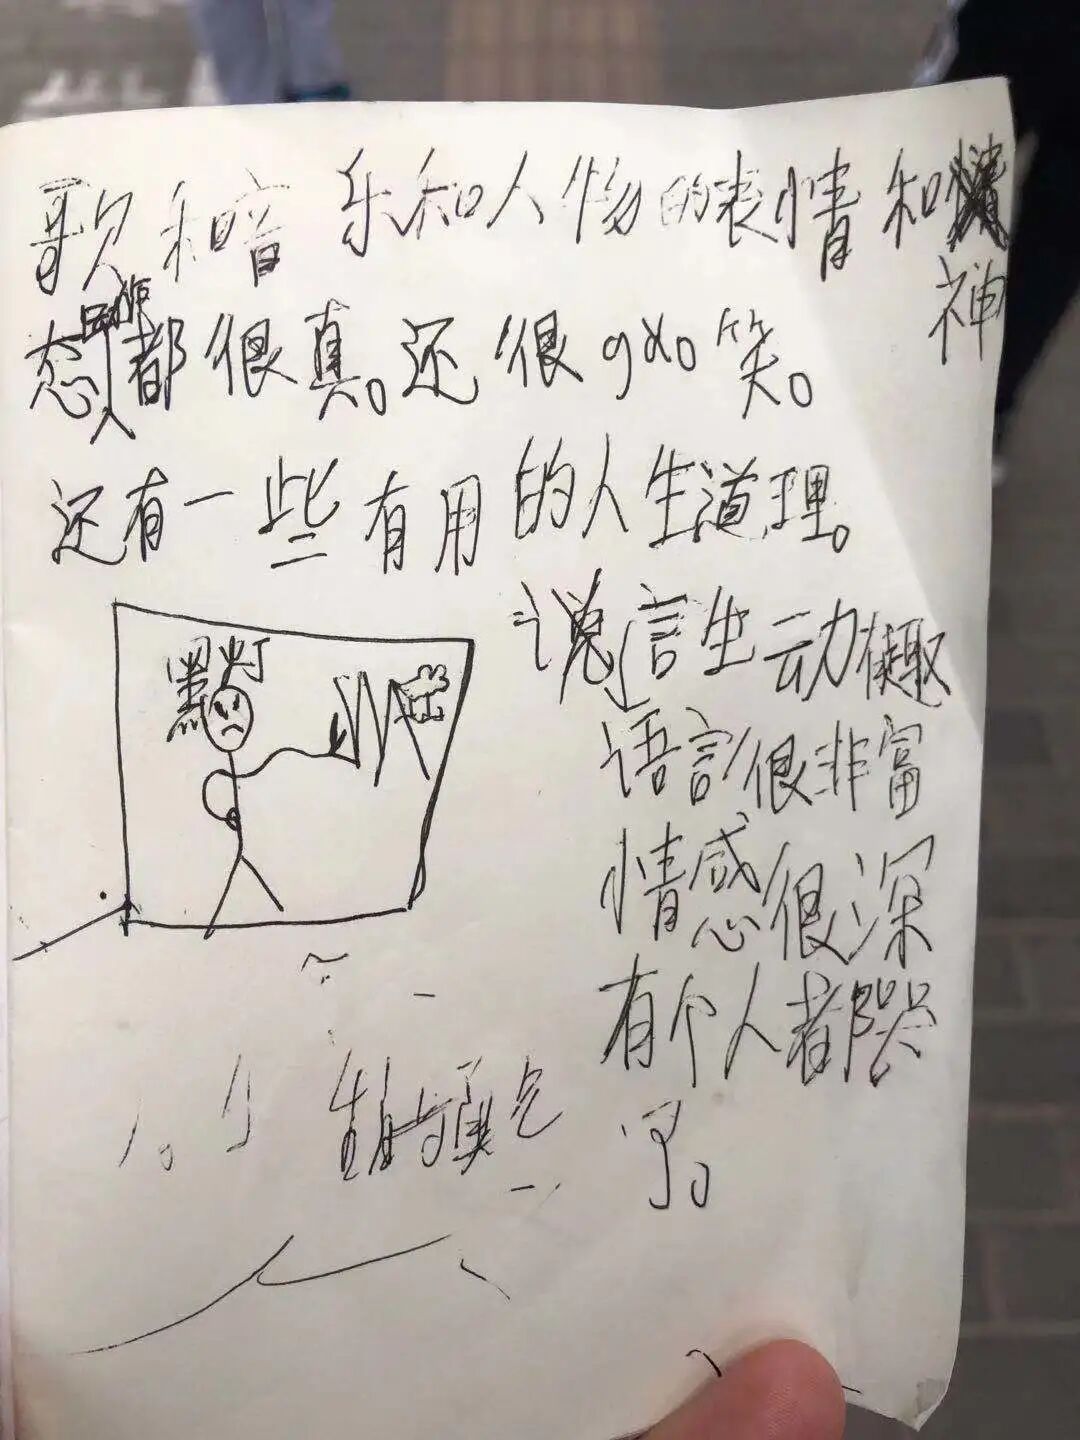 歌和音乐和人物的表情和神
态动作都很真。还很gǎo笑。
还有一些有用的人生道理。
黑灯
言生动有趣
语言很丰富
情感很深
有个人都哭
了。